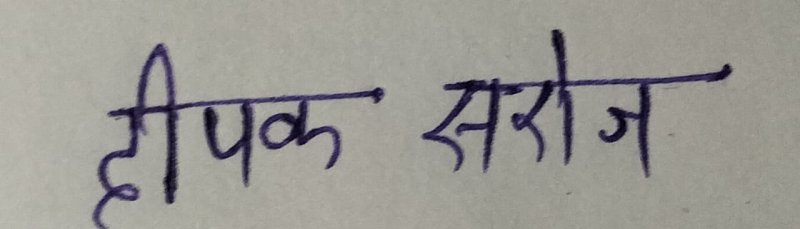 दीपक सरोज